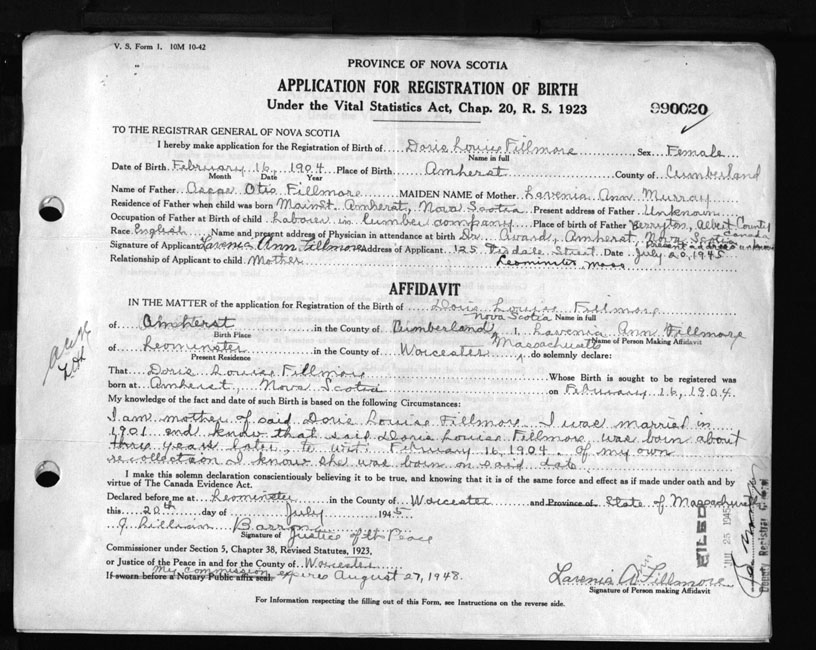 V. S. Form 1. 10M 10-42
PROVINCE OF NOVA SCOTIA
APPLICATION FOR REGISTRATION OF BIRTH
Under the Vital Statistics Act, Chap. 20, R. S. 1923
990020
TO THE REGISTRAR GENERAL OF NOVA SCOTIA
I hereby make application for the Registration of Birth of Doris Louise Fillmore Sex Female
Name in full
Date of Birth February 16, 1904 Place of Birth Amherst County of Cumberland
Month Date Year
Name of Father Oscar Otis Fillmore MAIDEN NAME of Mother Lavenia Ann Murray
Residence of Father when child was born Main St. Amherst, Nova Scotia Present address of Father Unknown
Occupation of Father at Birth of child Laborer in lumber company Place of birth of Father Albert County
Canada
Race English Name and present address of Physician in attendance at birth Dr. Amherst, Nova Scotia
Present address unknown
Signature of Applicant Lavenia Ann Fillmore Address of Applicant 125 Street Date July 20, 1945
Relationship of Applicant to child Mother Leominster, Mass
AFFIDAVIT
IN THE MATTER of the application for Registration of the Birth of Doris Louise Fillmore
Nova Scotia Name in full
of Amherst in the County of Cumberland, I, Lavenia Ann Fillmore
Birth Place Name of Person Making Affidavit
of Leominster in the County of Worcester, Massachusetts do solemnly declare:
Present Residence
That Doris Louise Fillmore Whose Birth is sought to be registered was
born at Amherst, Nova Scotia on February 16, 1904.
My knowledge of the fact and date of such Birth is based on the following Circumstances:
I am mother of said Doris Louise Fillmore. I was married in
1901 and know that said Doris Louise Fillmore was born about
three years later, to wit: February 16, 1904. Of my own
recollection I know she was born on said date.
I make this solemn declaration conscientiously believing it to be true, and knowing that it is of the same force and effect as if made under oath and by
virtue of The Canada Evidence Act.
Declared before me at Leominster in the County of Worcester and Province of State of Massachusetts
this 20th day of July 1945
J. William Barron
Signature of Justice of the Peace
Commissioner under Section 5, Chapter 38, Revised Statutes, 1923,
or Justice of the Peace in and for the County of Worcester
My commission expires August 27, 1948.
If sworn before a Notary Public affix seal.
Lavenia A. Fillmore
Signature of Person making Affidavit
For Information respecting the filling out of this Form, see Instructions on the reverse side.
FILED
JUL 25 1945